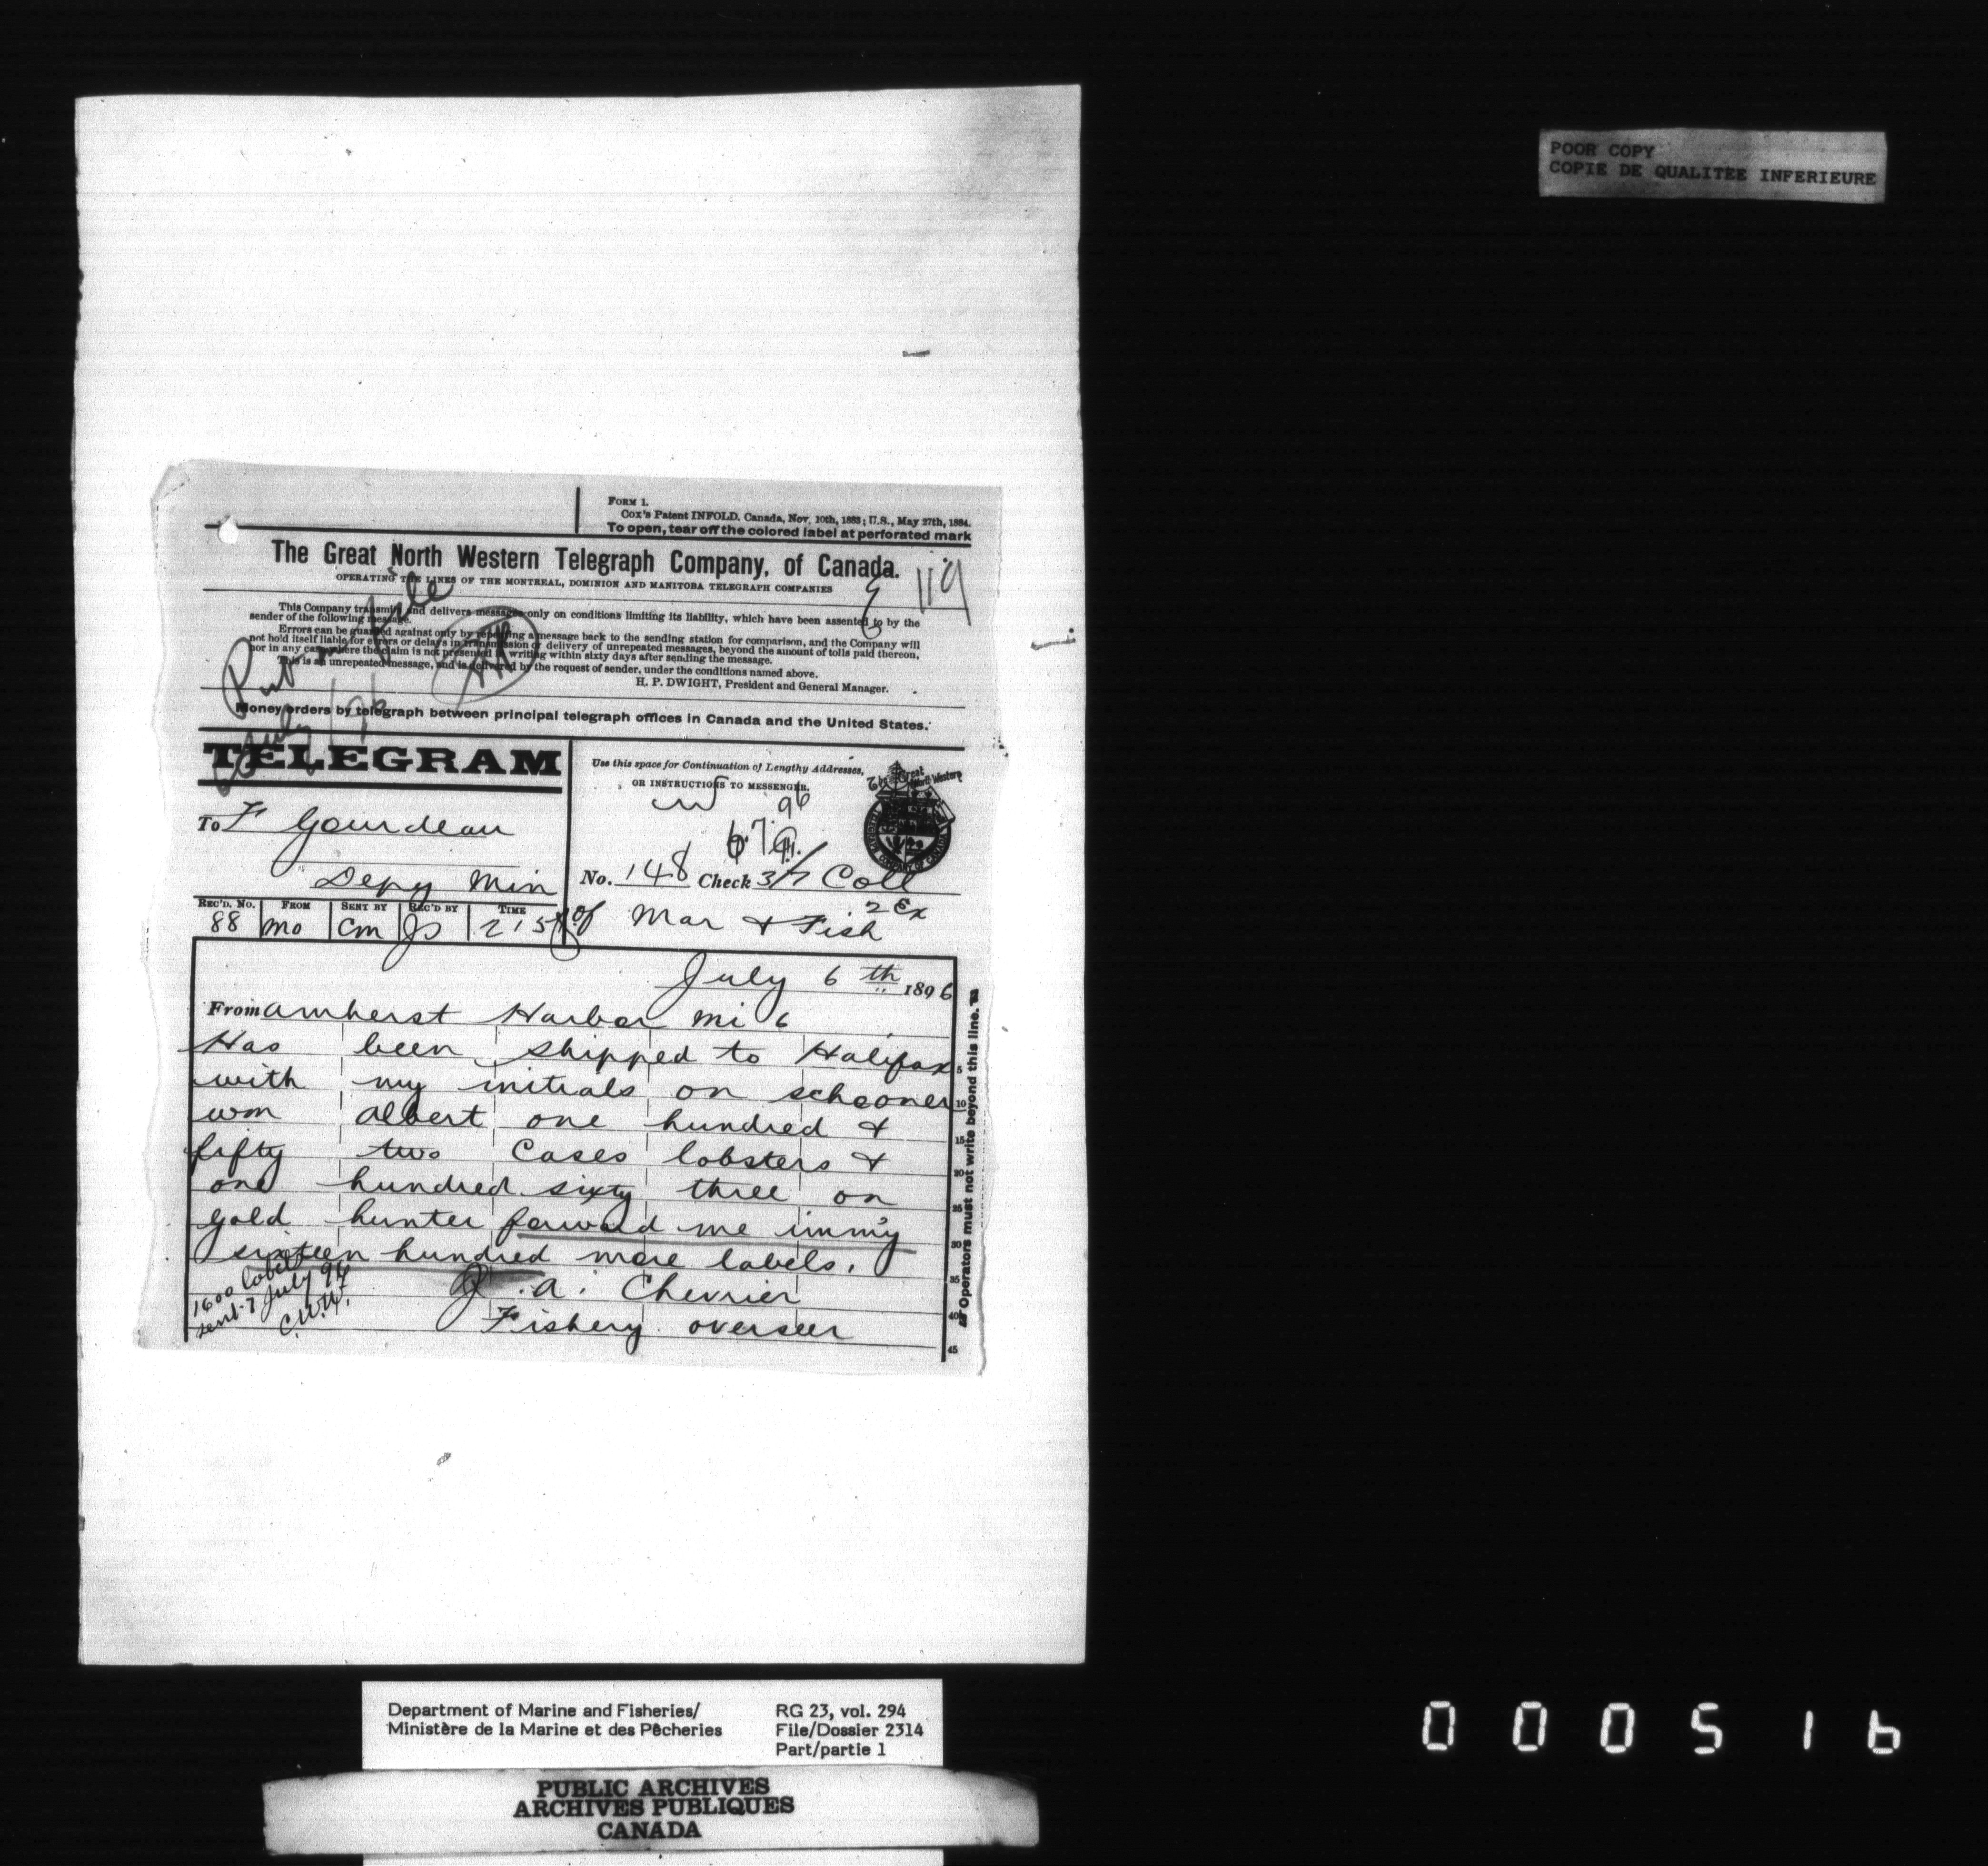 POOR COPY
COPIE DE QUALITEE INFERIEURE
FORM 1.
Cox's Patent INFOLD. Canada, Nov. 10th, 1883; U.S., May 27th, 1884.
To open, tear off the colored label at perforated mark
The Great North Western Telegraph Company, of Canada.
OPERATING THE LINES OF THE MONTREAL, DOMINION AND MANITOBA TELEGRAPH COMPANIES
119
This Company transmits and delivers messages only on conditions limiting its liability, which have been assented to by the
sender of the following message.
Errors can be guarded against only by repeating a message back to the sending station for comparison, and the Company will
not hold itself liable for errors or delays in transmission or delivery of unrepeated messages, beyond the amount of tolls paid thereon,
nor in any case where the claim is not presented in writing within sixty days after sending the message.
This is an unrepeated message, and is delivered by the request of sender, under the conditions named above.
H. P. DWIGHT, President and General Manager.
Put on file
July /96
Money orders by telegraph between principal telegraph offices in Canada and the United States.
TELEGRAM
Use this space for Continuation of Lengthy Addresses,
OR INSTRUCTIONS TO MESSENGER.
96
To F Gourdeau
Depy Min
No. 148 Check 37 Coll
2 Ex
REC'D. No. FROM SENT BY REC'D BY TIME
88 Mo Cm Js 215
of Mar & Fish
July 6th 1896
From Amherst Harbor Mi 6
Has been shipped to Halifax
with my initials on schooner
wm albert one hundred &
fifty two Cases lobsters &
one hundred sixty three on
gold hunter forward me immy
sixteen hundred more labels.
J. A. Chevrier
Fishery overseer
1600 labels
sent 7 July 96
5
10
15
20
25
30
35
40
45
Operators must not write beyond this line.
Department of Marine and Fisheries/
Ministère de la Marine et des Pêcheries
RG 23, vol. 294
File/Dossier 2314
Part/partie 1
PUBLIC ARCHIVES
ARCHIVES PUBLIQUES
CANADA
000516